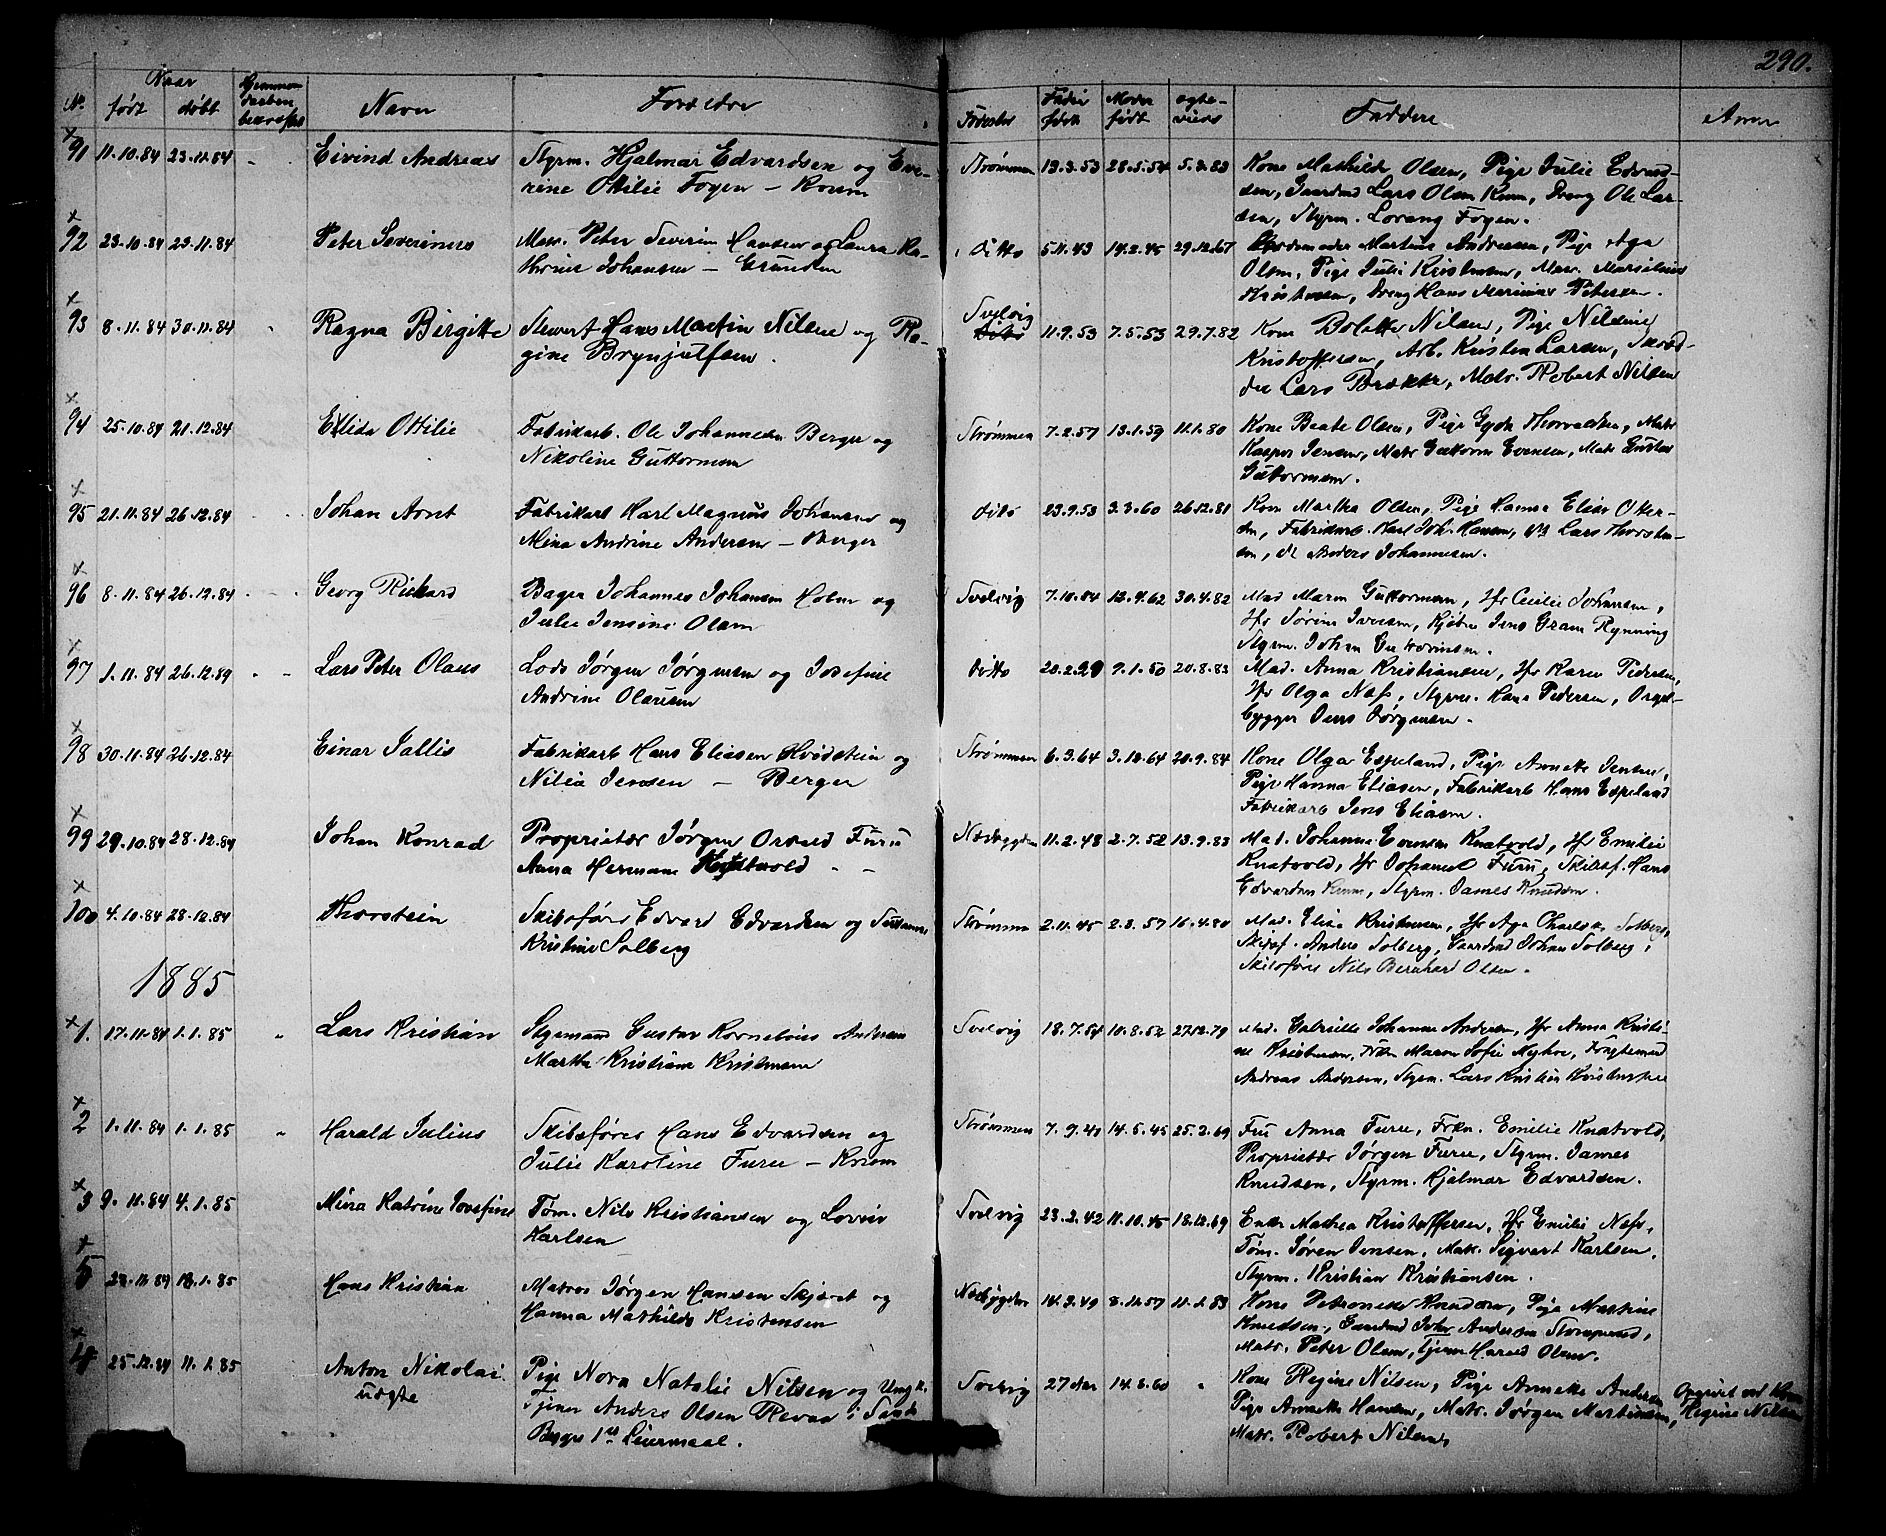 290.
No. Naar født døbt Hjemmedaaben bekræftet Navn Forældre Fødested Fader født Moder født ægteviede Faddere Anm
91 11.10.84 23.11.84 Eivind Andreas Styrm. Hjalmar Edvardsen og Eve- Strømmen 13.3.53 28.5.54 5.3.83 Kone Mathilde Olsen, Pige Julie Edvard-
rine Ottilie Fogen – Knem sen, Gaardmd Lars Olsen Knem, Dreng Ole Lar-
sen, Styrm. Lorang Fogen.
92 23.10.84 23.11.84 Peter Severinus Matr. Peter Severin Hansen og Laura Ka- ditto 5.11.43 14.2.45 29.12.67 Martine Andersen, Pige Aga
thrine Johansen – Grunden Olsen, Pige Julie Kristensen, Matr. Marselius
Kristensen, Dreng Hans Marinius Petersen.
93 8.11.84 30.11.84 Ragna Birgitte Stuert Hans Martin Nilsen og Ra- Svelvig 11.9.53 7.5.53 29.7.82 Kone Bolette Nilsen, Pige Nilsine
gine Brynjulfsen. Kristoffersen, Arb. Kristen Larsen, Skræd-
der Lars Brække, Matr. Robert Nilsen
94 25.10.84 21.12.84 Ellida Ottilie Fabrikarb. Ole Johannesen Berger og Strømmen 7.2.57 13.1.59 11.1.80 Kone Beate Olsen, Pige Gyda Thorvaldsen, Matr
Nikoline Guttormsen Kasper Jensen, Matr Guttorm Evensen, Matr Gustav
Guttormsen.
95 21.11.84 26.12.84 Johan Arnt Fabrikarb Karl Magnus Johansen og ditto 23.9.53 3.3.60 26.12.81 Kone Martha Olsen, Pige Hanna Elise Otter-
Mina Andrine Andersen – Berger sen, Fabrikarb. Karl Joh. Hansen, do Lars Thorsten-
sen, do Anders Johannesen.
96 8.11.84 26.12.84 Georg Rickard Bager Johannes Johansen Holm og Svelvig 7.10.54 12.4.62 30.4.82 Mad Maren Guttormsen, Jfr Cecilie Johansen,
Julie Jensine Olsen Jfr Sørine Iversen, Kjøbm Jens Gram Rynning
Styrm. Johan Guttormsen.
97 1.11.84 26.12.84 Lars Peter Olaus Lods Jørgen Jørgensen og Josefine ditto 20.2.29 9.1.50 20.8.83 Mad. Anna Kristiansen, Jfr Karen Pedersen,
Andrine Olausen Jfr Olga Næss, Styrm. Hans Pedersen, Orgel-
bygger Jens Jørgensen.
98 30.11.84 26.12.84 Einar Jallis Fabrikarb Hans Eliasen Hvidstein og Strømmen 6.3.64 3.12.64 20.9.84 Kone Olga Espeland, Pige Annette Jensen,
Nilia Jensen – Berger Pige Hanna Eliasen, Fabrikarb Hans Espeland
Fabrikarb Jens Eliasen.
99 29.10.84 28.12.84 Johan Konrad Proprietær Jørgen Furu Nesbygden 11.2.48 2.7.52 13.9.83 Mad. Johanne Evensen Knatvold, Jfr Emilie
Anna Hermane Knatvold Knatvold, Jfr Johanne Furu, Skibsf. Hans
Edvardsen Knem, Styrm. James Knudsen.
100 4.10.84 28.12.84 Thorstein Skibsfører Edvard Edvardsen og Susanne Strømmen 2.11.45 2.3.57 16.4.80 Mad. Elise Kristensen, Jfr Aga Solberg,
Kristine Solberg Skibsf. Anders Solberg, Gaardmd Johan Solberg,
Skibsfører Nils Bernhard Olsen.
1885
1. 17.11.84 1.1.85 Lars Kristian Styrmand Gustav Kornelius Andersen Svelvig 18.7.54 10.8.52 27.12.79 Mad. Gabrielle Johanne Andersen, Jfr Anna Kristi-
Martha Kristiane Kristensen ne Kristensen, Frkn Maren Sofie Myhre,
Andreas Andersen, Styrm. Lars Kristian Kristensen
2 1.11.84 1.1.85 Harald Julius Skibsfører Hans Edvardsen og Strømmen 7.9.40 14.5.45 25.2.69 Fru Anna Furu, Frkn. Emilie Knatvold,
Julie Karoline Furu – Knem Proprietær Jørgen Furu, Styrm. James
Knudsen, Styrm. Hjalmar Edvardsen.
3 9.11.84 4.1.85 Mina Katrine Josefine Tøm. Nils Kristiansen og Lovise Svelvig 23.2.42 11.10.45 18.12.69 Enke Mathea Kristoffersen, Jfr Emilie Næss,
Karlsen Tøm. Søren Jensen, Matr. Sigvart Karlsen,
Styrm. Kristian Kristiansen.
5 18.1.85 Hans Kristian Matros Jørgen Hansen Skjæret og Nesbygden 14.3.49 8.11.57 11.1.83 Kone Petronelle Knudsen, Pige Martine
Hanna Mathilde Kristensen Knudsen, Gaardmd John Andersen
Matr. Peter Olsen, Tjener Harald Olsen.
4 25.12.84 11.1.85 Anton Nikolai Pige Nora Natalie Nilsen og Ungk. Svelvig 27 Aar 14.8.60 Kone Regine Nilsen, Pige Annette Andersen Opgivet ved Kone
uægte Tjener Anders Olsen Revaa i Sande Pige Annette Hansen, Matr. Jørgen Martinsen, Regine Nilsen
Begges 1ste Leiermaal. Matr. Robert Nilsen,